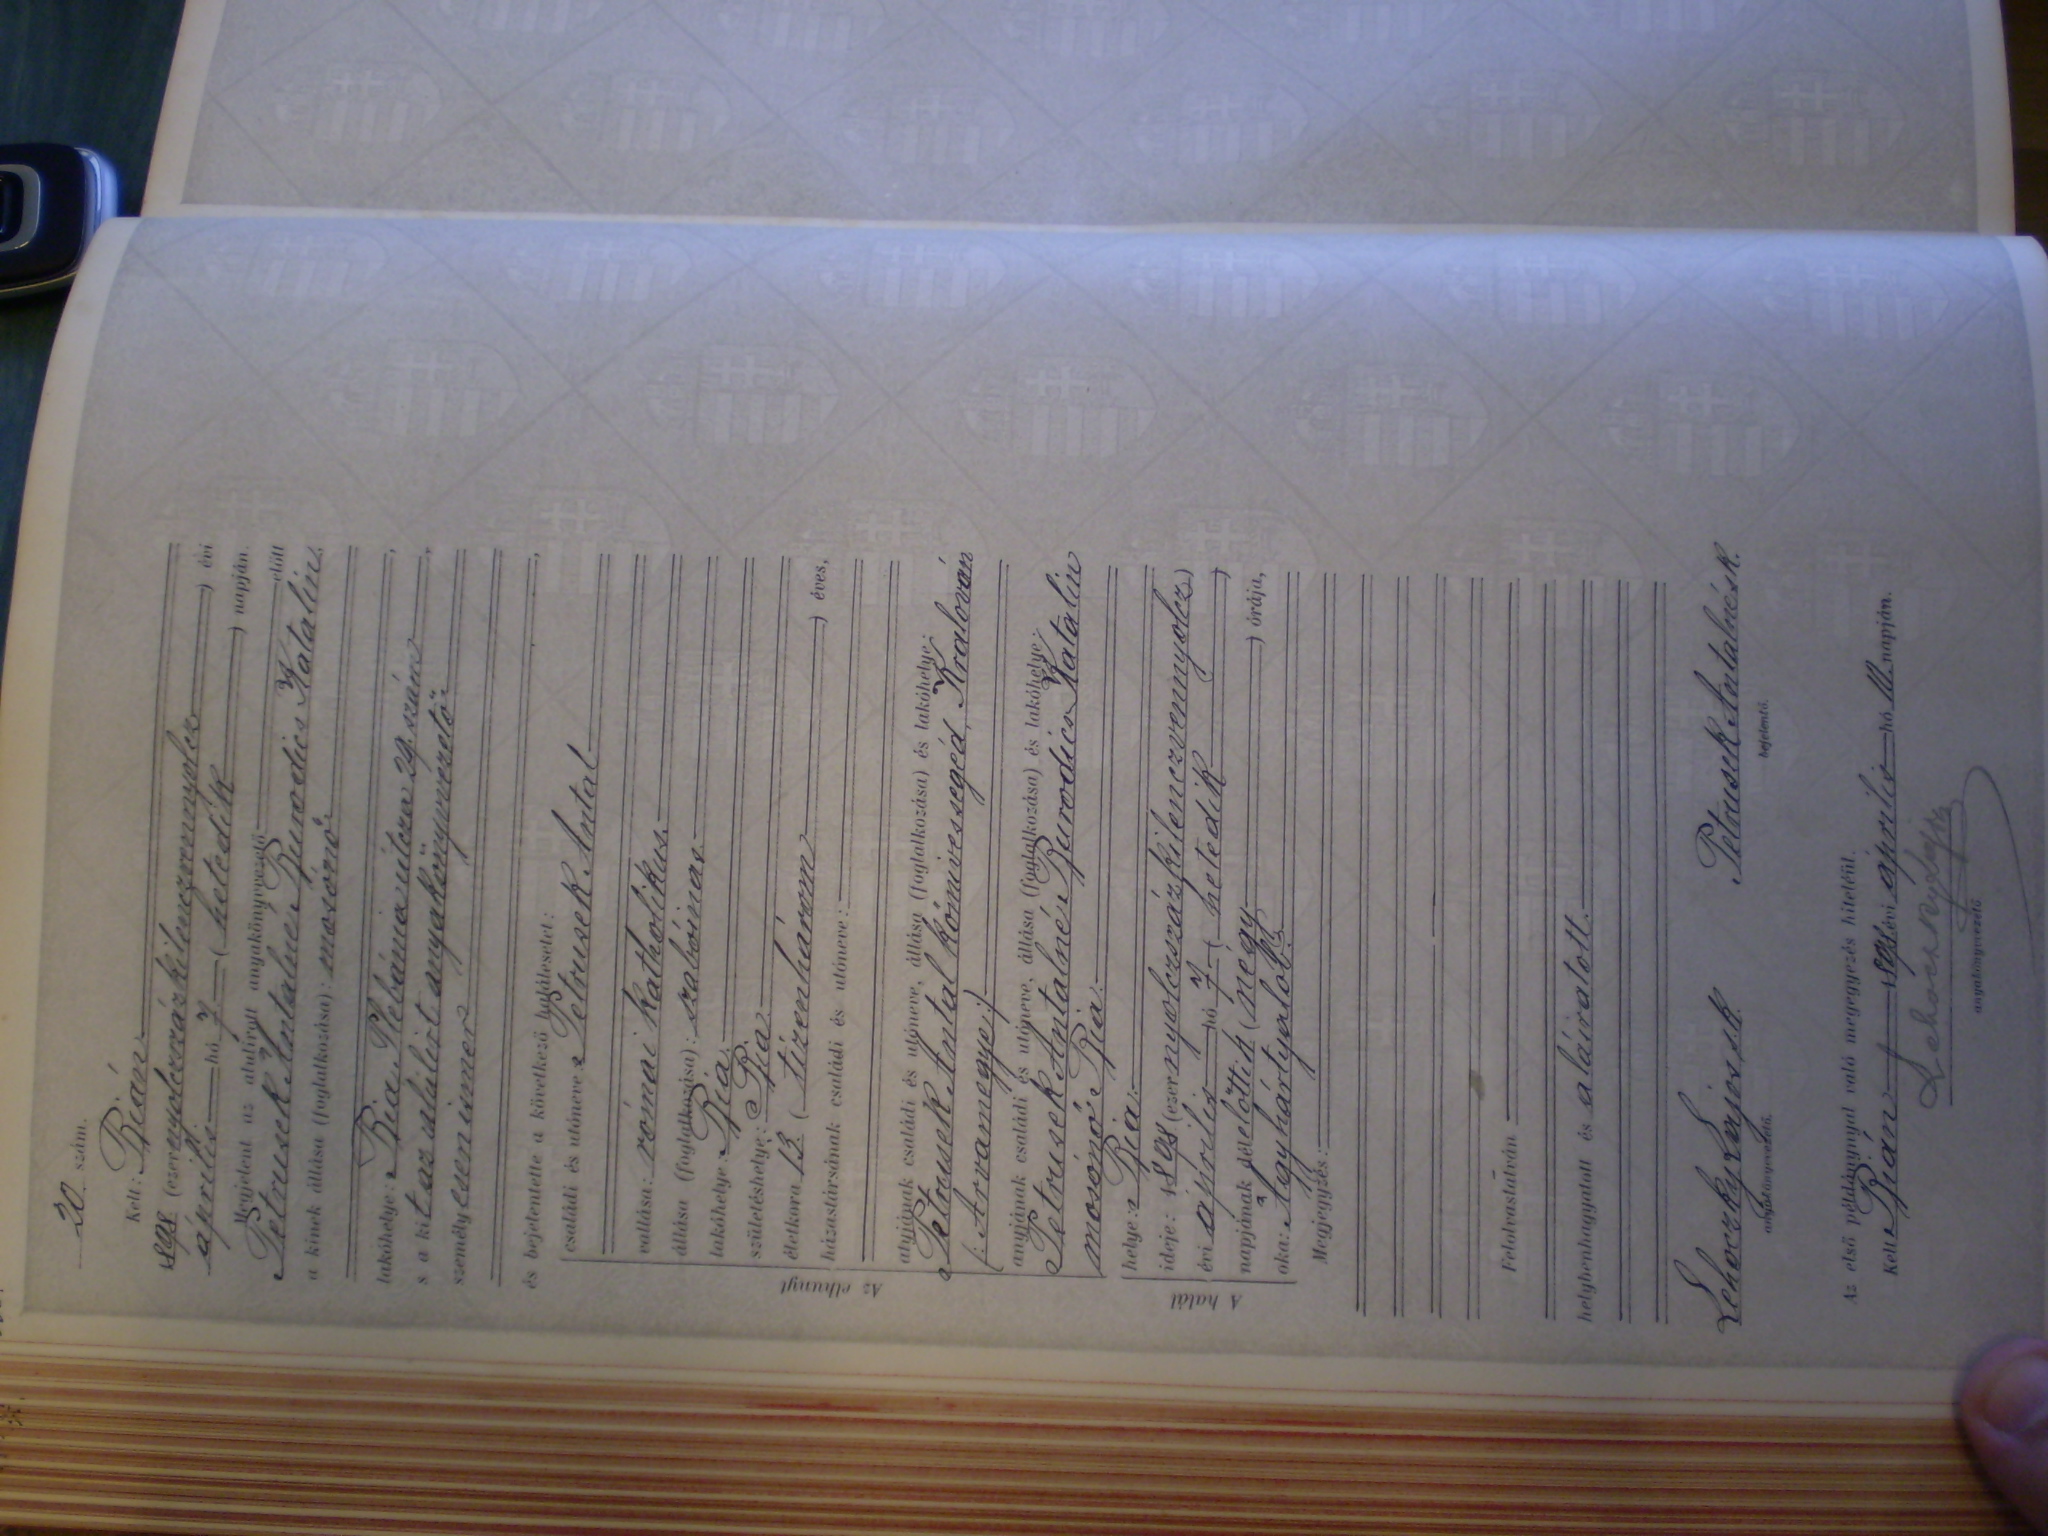 20 szám.
Kelt: Bián
1898 (ezernyolczszázkilenczvennyolcz) évi
április hó 7 (hetedik) napján.
Megjelent az alulírott anyakönyvvezető előtt
Petrusek Antalné Burodics Katalin
a kinek állása (foglalkozása): mosónő
lakóhelye: Bia Plebánia útcza 29. szám,
s a kit az alulírt anyakönyvvezető,
személyesen ismer
és bejelentette a következő halálesetet:
Az elhunyt
családi és utóneve: Petrusek Antal
vallása: római katholikus.
állása (foglalkozása): szabóinas.
lakóhelye: Bia.
születéshelye: Bia
életkora 13 (tizenhárom) éves,
házastársának családi és utóneve:
atyjának családi és utóneve, állása (foglalkozása) és lakóhelye:
Petrusek Antal kőmivessegéd, Kralován
(: Arvamegye :)
anyjának családi és utóneve, állása (foglalkozása) és lakóhelye:
Petrusek Antalné Burodics Katalin
mosónő Bia.
A halál
helye: Bia.
ideje: 1898 (ezernyolczszázkilenczvennyolcz)
évi április hó 7 (hetedik)
napjának délelőtti 4 (négy) órája,
oka: Agyhártyalob.
Megjegyzés:
Felolvastatván
helybenhagyatott és aláíratott.
Lehoczky Lajos sk. Petrusek Antalné sk.
anyakönyvvezető. bejelentő.
Az első példánynyal való megegyezés hiteléül.
Kelt Bián 1898 évi április hó 10. napján.
Lehoczky Lajos
anyakönyvvezető.